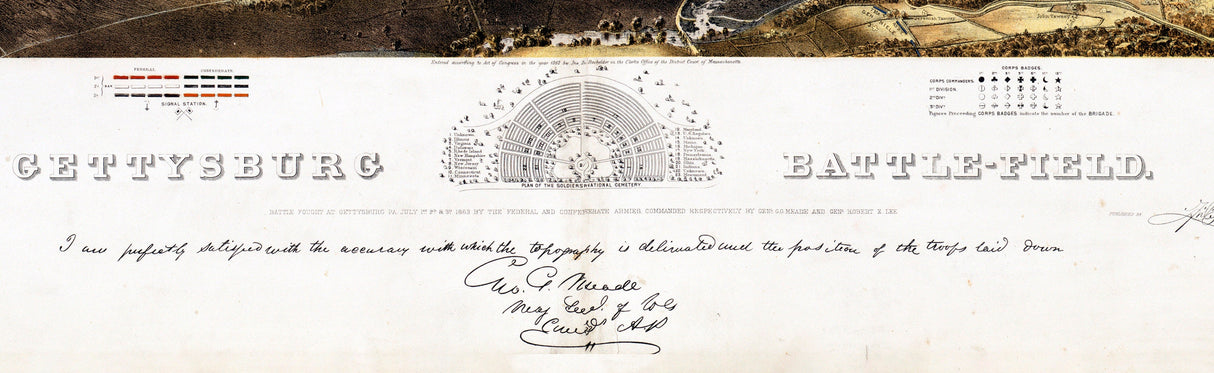 John Taweney
Entered according to Act of Congress in the year 1863 by Jno. B. Bachelder in the Clerks Office of the District Court of Massachusetts.
FEDERAL. CONFEDERATE.
1st
2d DAY
3d
SIGNAL STATION.
CORPS BADGES.
CORPS COMMANDERS.
1st DIVISION.
2nd DIVn
3d DIVn
Figures Preceeding CORPS BADGES indicate the number of the BRIGADE.
1. Unknown.
2. Illinois
3. Virginia
4. Delaware
5. Rhode Island
6. New Hampshire
7. Vermont
8. New Jersey
9. Wisconsin
10. Connecticut
11. Minnesota
12. Maryland
13. U.S. Regulars
14. Unknown
15. Maine
16. Michigan
17. New York
18. Pennsylvania
19. Massachusetts
20. Ohio
21. Indiana
22. Unknown
PLAN OF THE SOLDIERS NATIONAL CEMETERY
GETTYSBURG BATTLE-FIELD.
BATTLE FOUGHT AT GETTYSBURG PA. JULY 1st 2d & 3d 1863 BY THE FEDERAL AND CONFEDERATE ARMIES COMMANDED RESPECTIVELY BY GENl G.G. MEADE AND GENl ROBERT E. LEE
PUBLISHED BY
I am perfectly satisfied with the accuracy with which the topography is delineated and the position of the troops laid down
Geo. G. Meade
Maj Genl. of Vols
Comdg AP